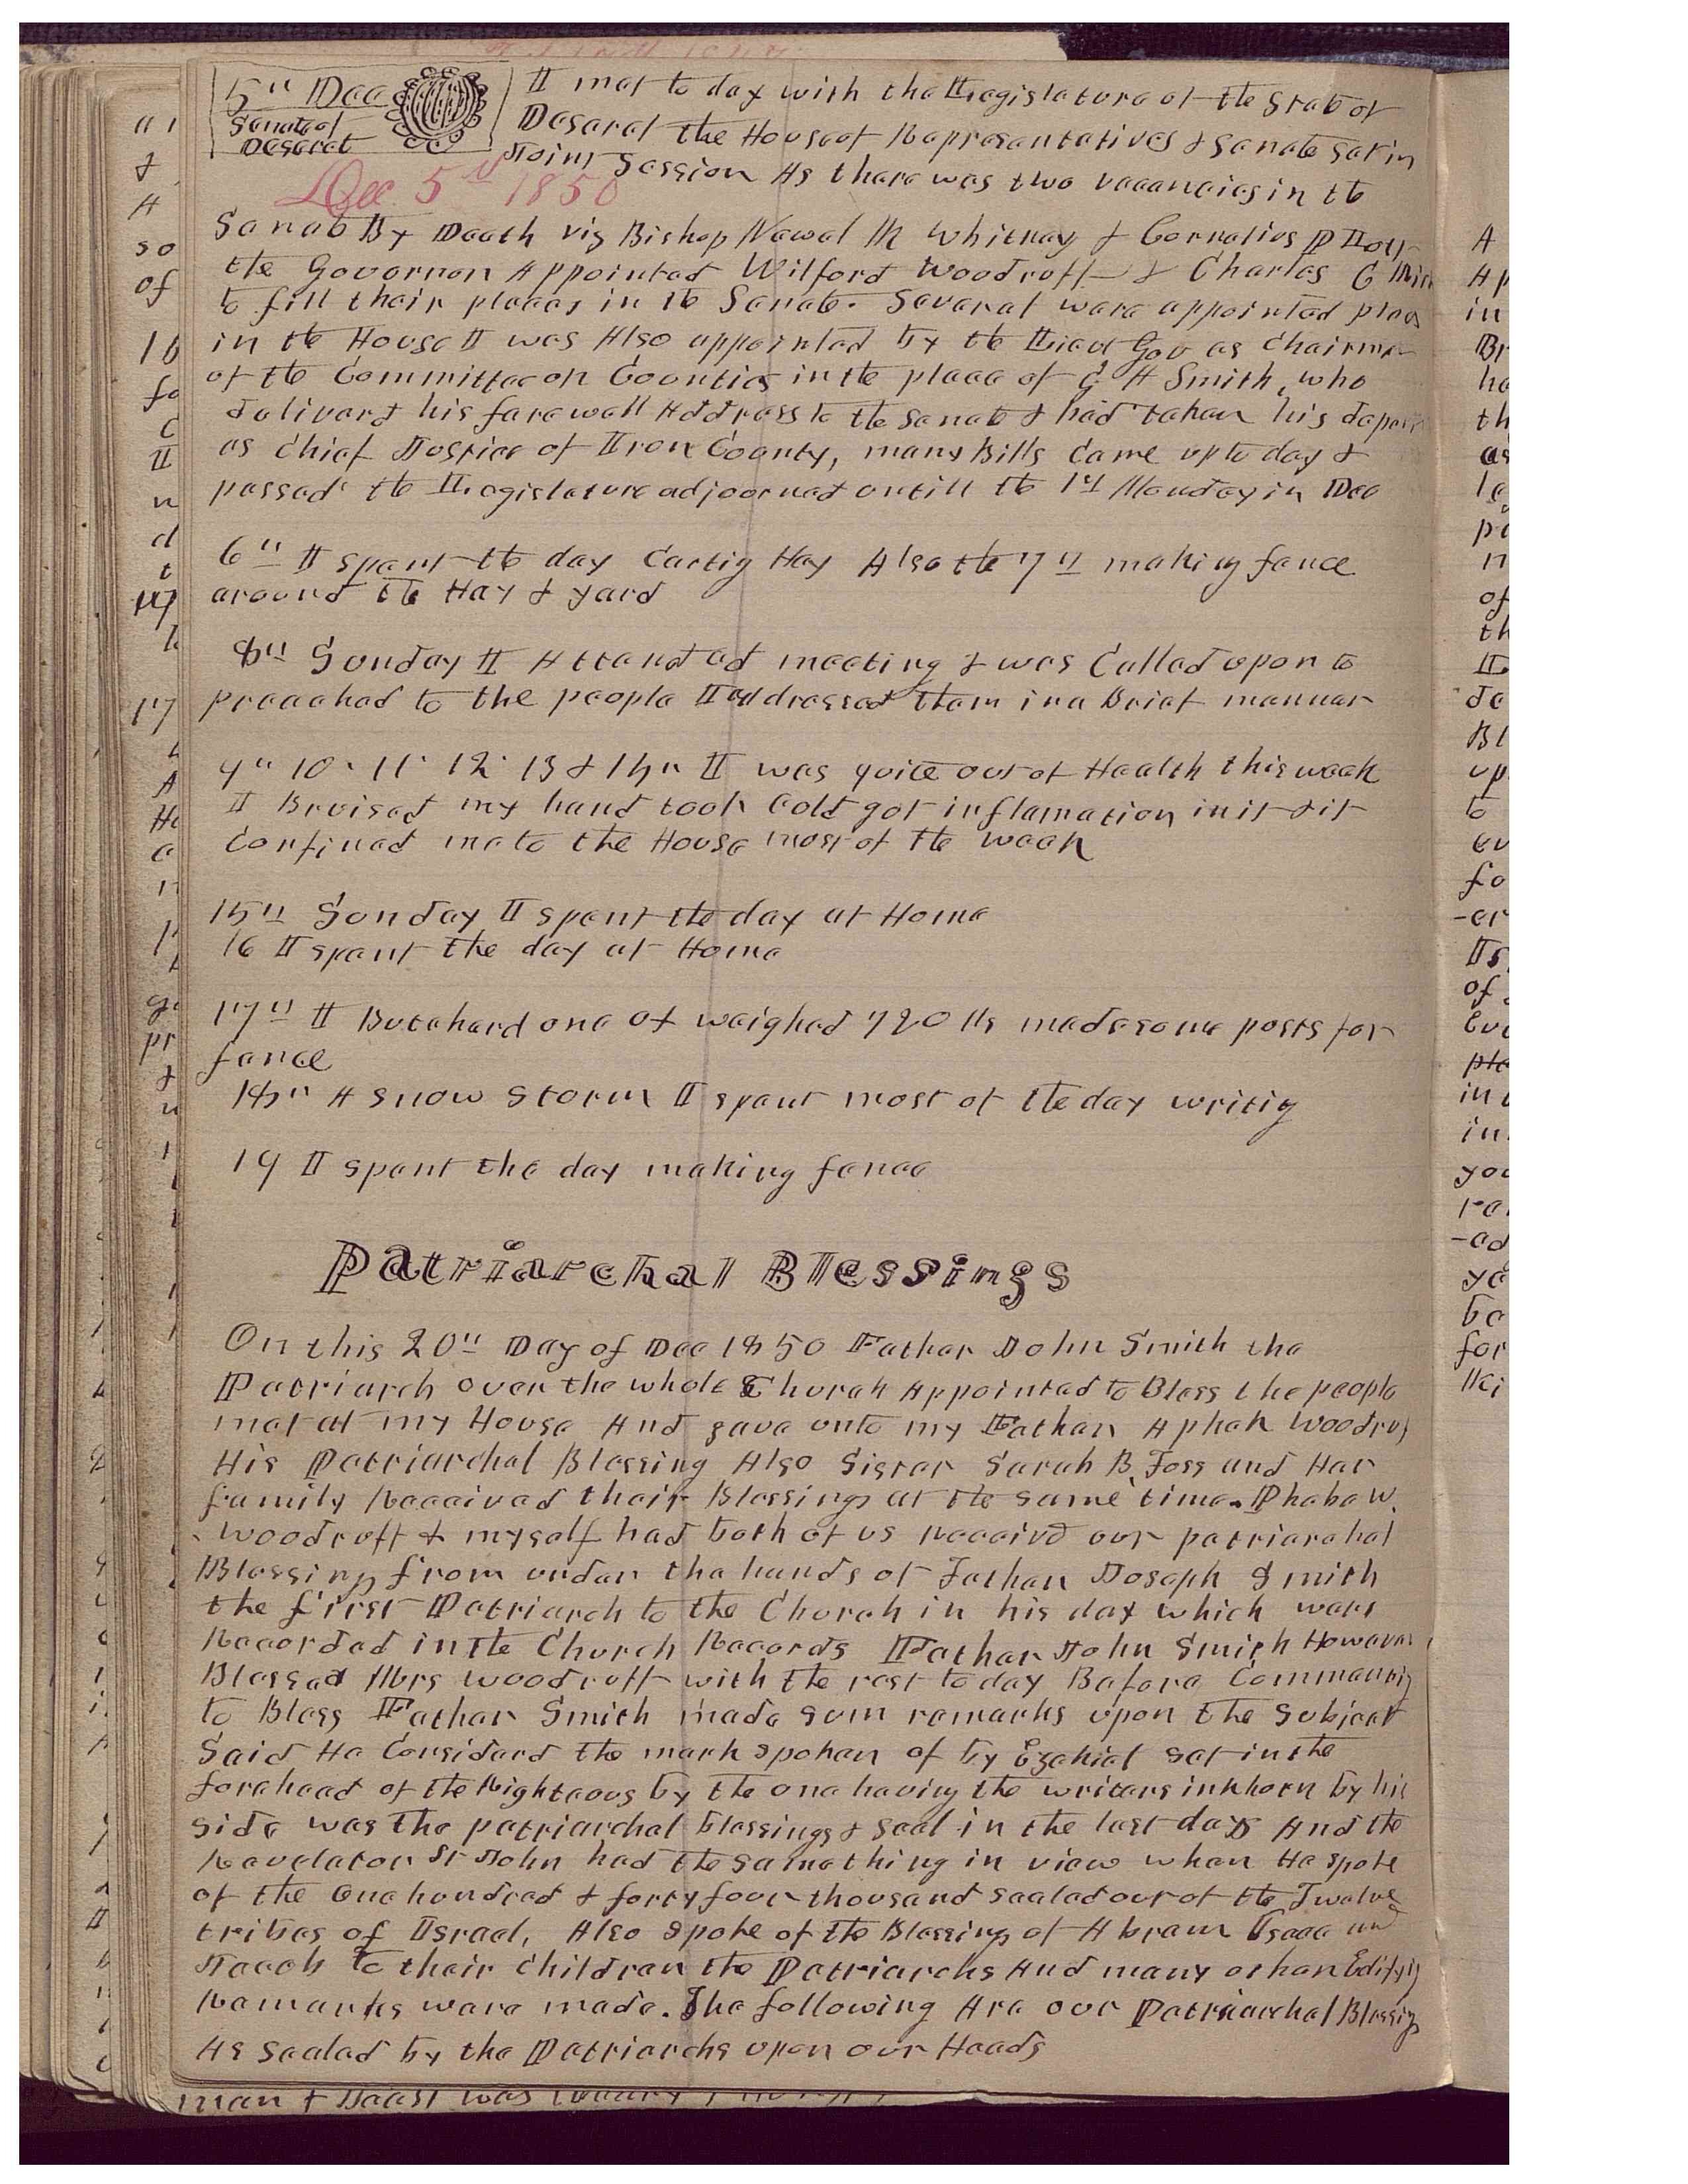 5th Dec
Senate of
Deseret
I met to day with the Legislature of the State of
Deseret the House of Representatives & Senate sat in
Joint Session As there was two vacancies in the
Dec. 5th 1850
Senate By Death viz Bishop Newel K Whitney & Cornelius P Lott
the Governor Appointed Wilford Woodruff & Charles C Rich
to fill their places in the Senate. Several were appointed places
in the House I was Also appointed by the Lieut Gov as Chairman
of the Committee on Counties in the place of G A Smith, who
deliverd his farewell Address to the Senate & had taken his
as Chief Justice of Iron County, many Bills Came up to day &
passed the Legislature adjourned untill the 1st Monday in Dec
6th I spent the day Carting Hay Also the 7th making fence
around the Hay & yard
8th Sunday I Attended meeting & was Called upon to
preached to the people I addressed them in a Brief manner
9th 10. 11. 12. 13 & 14th I was quite out of Health this week
I Bruised my hand took Cold got inflamation in it & it
Confined me to the House most of the week
15th Sunday I spent the day at Home
16 I spent the day at Home
17th I Butcherd one ox weighed 720 lbs made some posts for
fence
18th A snow storm I spent most of the day writing
19 I spent the day making fence
Patriarchal Blessings
On this 20th Day of Dec 1850 Father John Smith the
Patriarch over the whole Church Appointed to Bless the people
met at my House And gave unto my Father Aphek Woodruff
His Patriarchal Blessing Also Sister Sarah B. Foss and Her
family Received their Blessings at the same time. Phebe W.
Woodruff & myself had both of us receivd our patriarchal
Blessings from under the hands of Father Joseph Smith
the first Patriarch to the Church in his day which ware
Recorded in the Church Records Father John Smith However
Blessed Mrs Woodruff with the rest to day Before Commencing
to Bless Father Smith made sum remarks upon the subject
Said He Considerd the mark spoken of by Ezekiel set in the
forehead of the Righteous by the one having the writers inkhorn by his
side was the patriarchal blessings & seal in the last days And the
Revelator St John had the same thing in view when He spoke
of the one hundred & forty four thousand sealed out of the Twelve
tribes of Israel, Also spoke of the Blessings of Abram Isaac and
Jacob to their Children the Patriarchs And many other Edifying
Remarks were made. The following Are our Patriarchal Blessings
As sealed by the Patriarchs upon our Heads